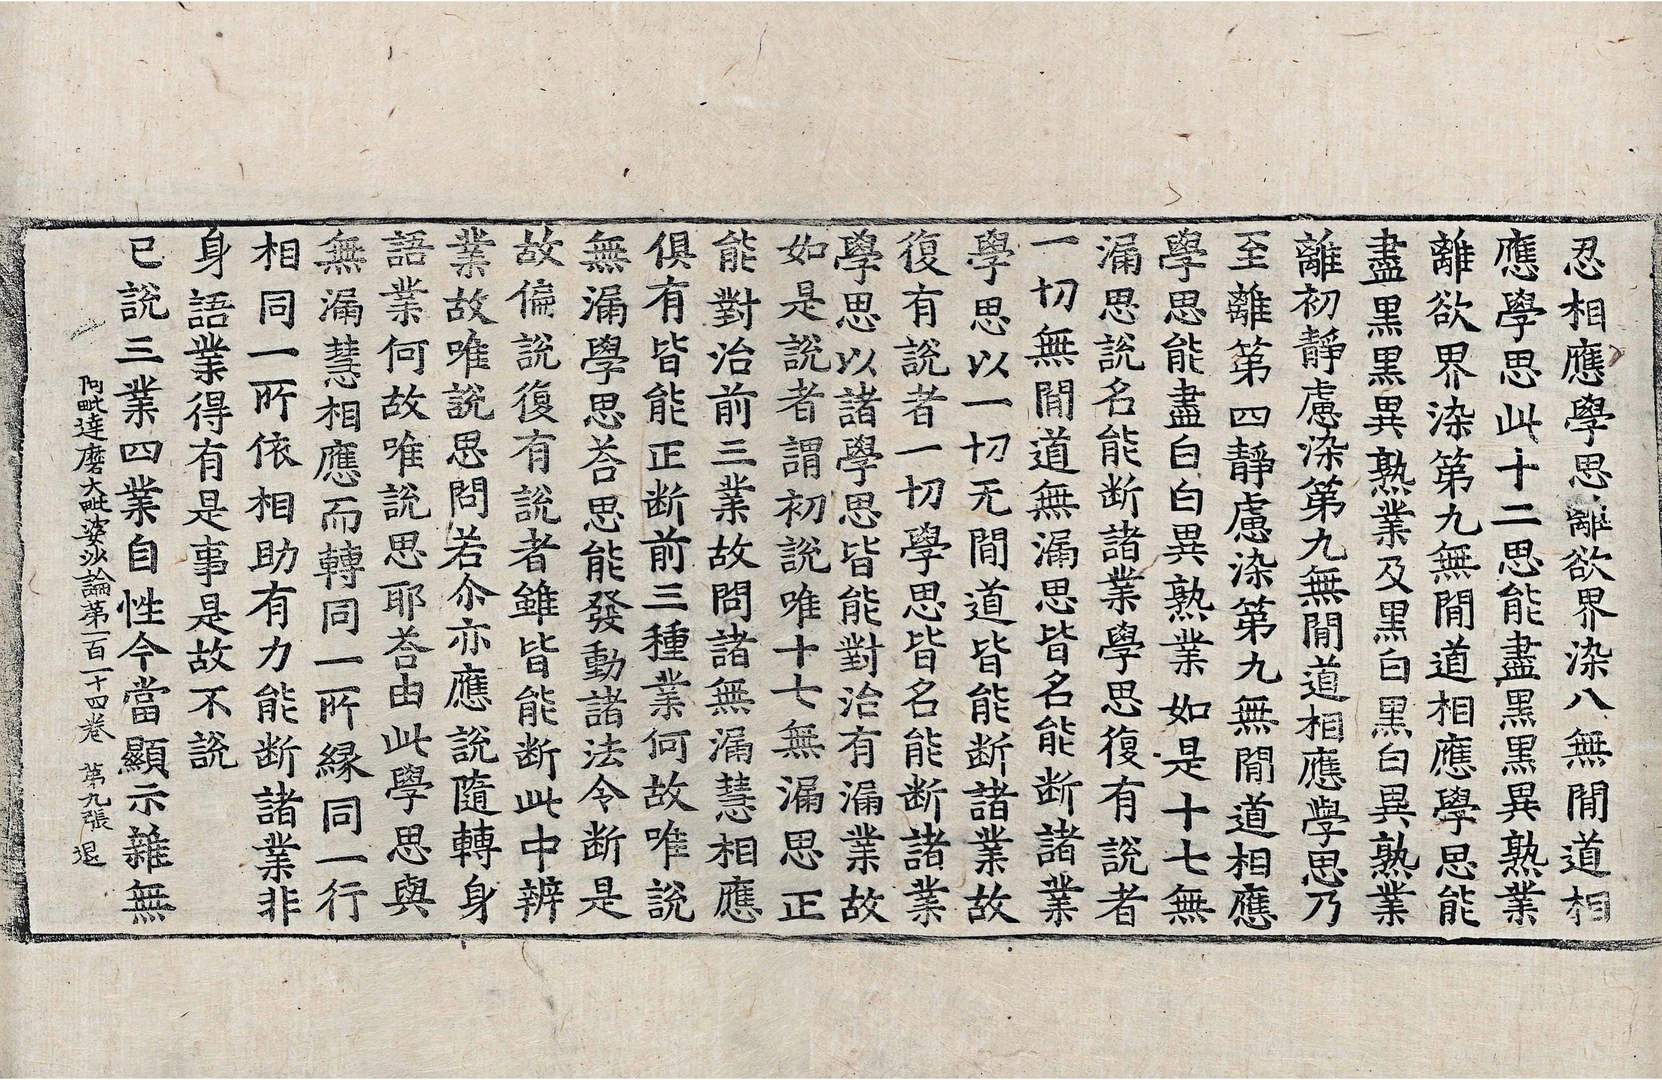 忍相應學思離欲界染八無間道相
應學思此十二思能盡黑黑異熟業
離欲界染第九無間道相應學思能
盡黑黑異熟業及黑白黑白異熟業
離初靜慮染第九無間道相應學思乃
至離第四靜慮染第九無間道相應
學思能盡白白異熟業如是十七無
漏思說名能斷諸業學思復有說者
一切無間道無漏思皆名能斷諸業
學思以一切无間道皆能断諸業故
復有說者一切學思皆名能断諸業
學思以諸學思皆能對治有漏業故
如是說者謂初說唯十七無漏思正
能對治前三業故問諸無漏慧相應
俱有皆能正断前三種業何故唯說
無漏學思荅思能發動諸法令断是
故偏說復有說者雖皆能断此中辨
業故唯說思問若尒亦應說隨轉身
語業何故唯說思耶荅由此學思與
無漏慧相應而轉同一所緣同一行
相同一所依相助有力能断諸業非
身語業得有是事是故不說
已說三業四業自性今當顯示雜無
阿毗達磨大毗婆沙論第一百一十四卷 第九張 退